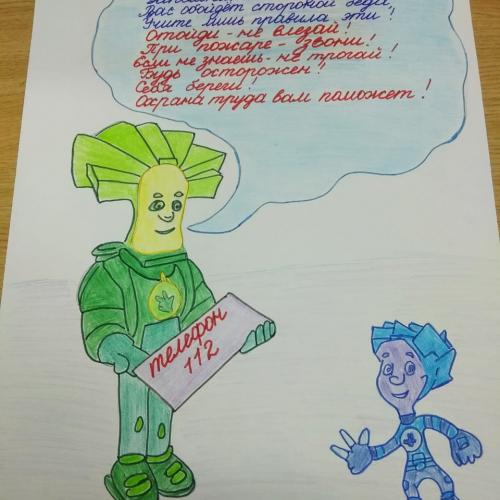 Вас обойдёт стороной беда,
Учите лишь правила эти!
Отойди - не влезай!
При пожаре - звони!
Если не знаешь - не трогай!
Будь осторожен!
Себя береги!
Охрана труда вам поможет!
телефон
112